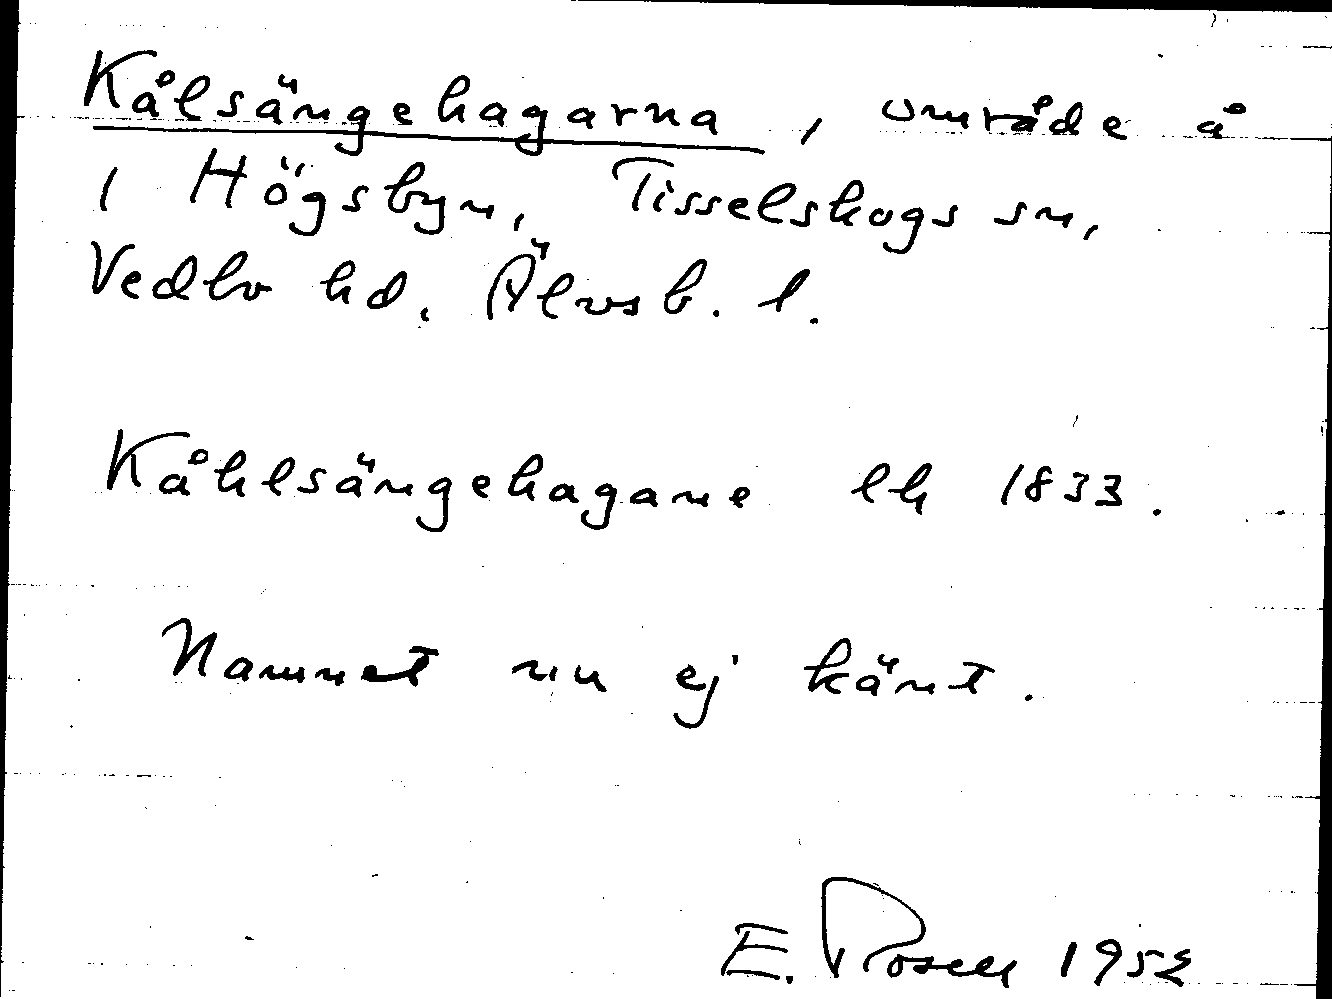 Kålsängehagarna, område å
1 Högsbyn, Tisselskogs sn,
Vedbo hd. Älvsb. l.
Kåhlsängehagane lh 1833.
Namnet nu ej känt.
E. Rosell 1952